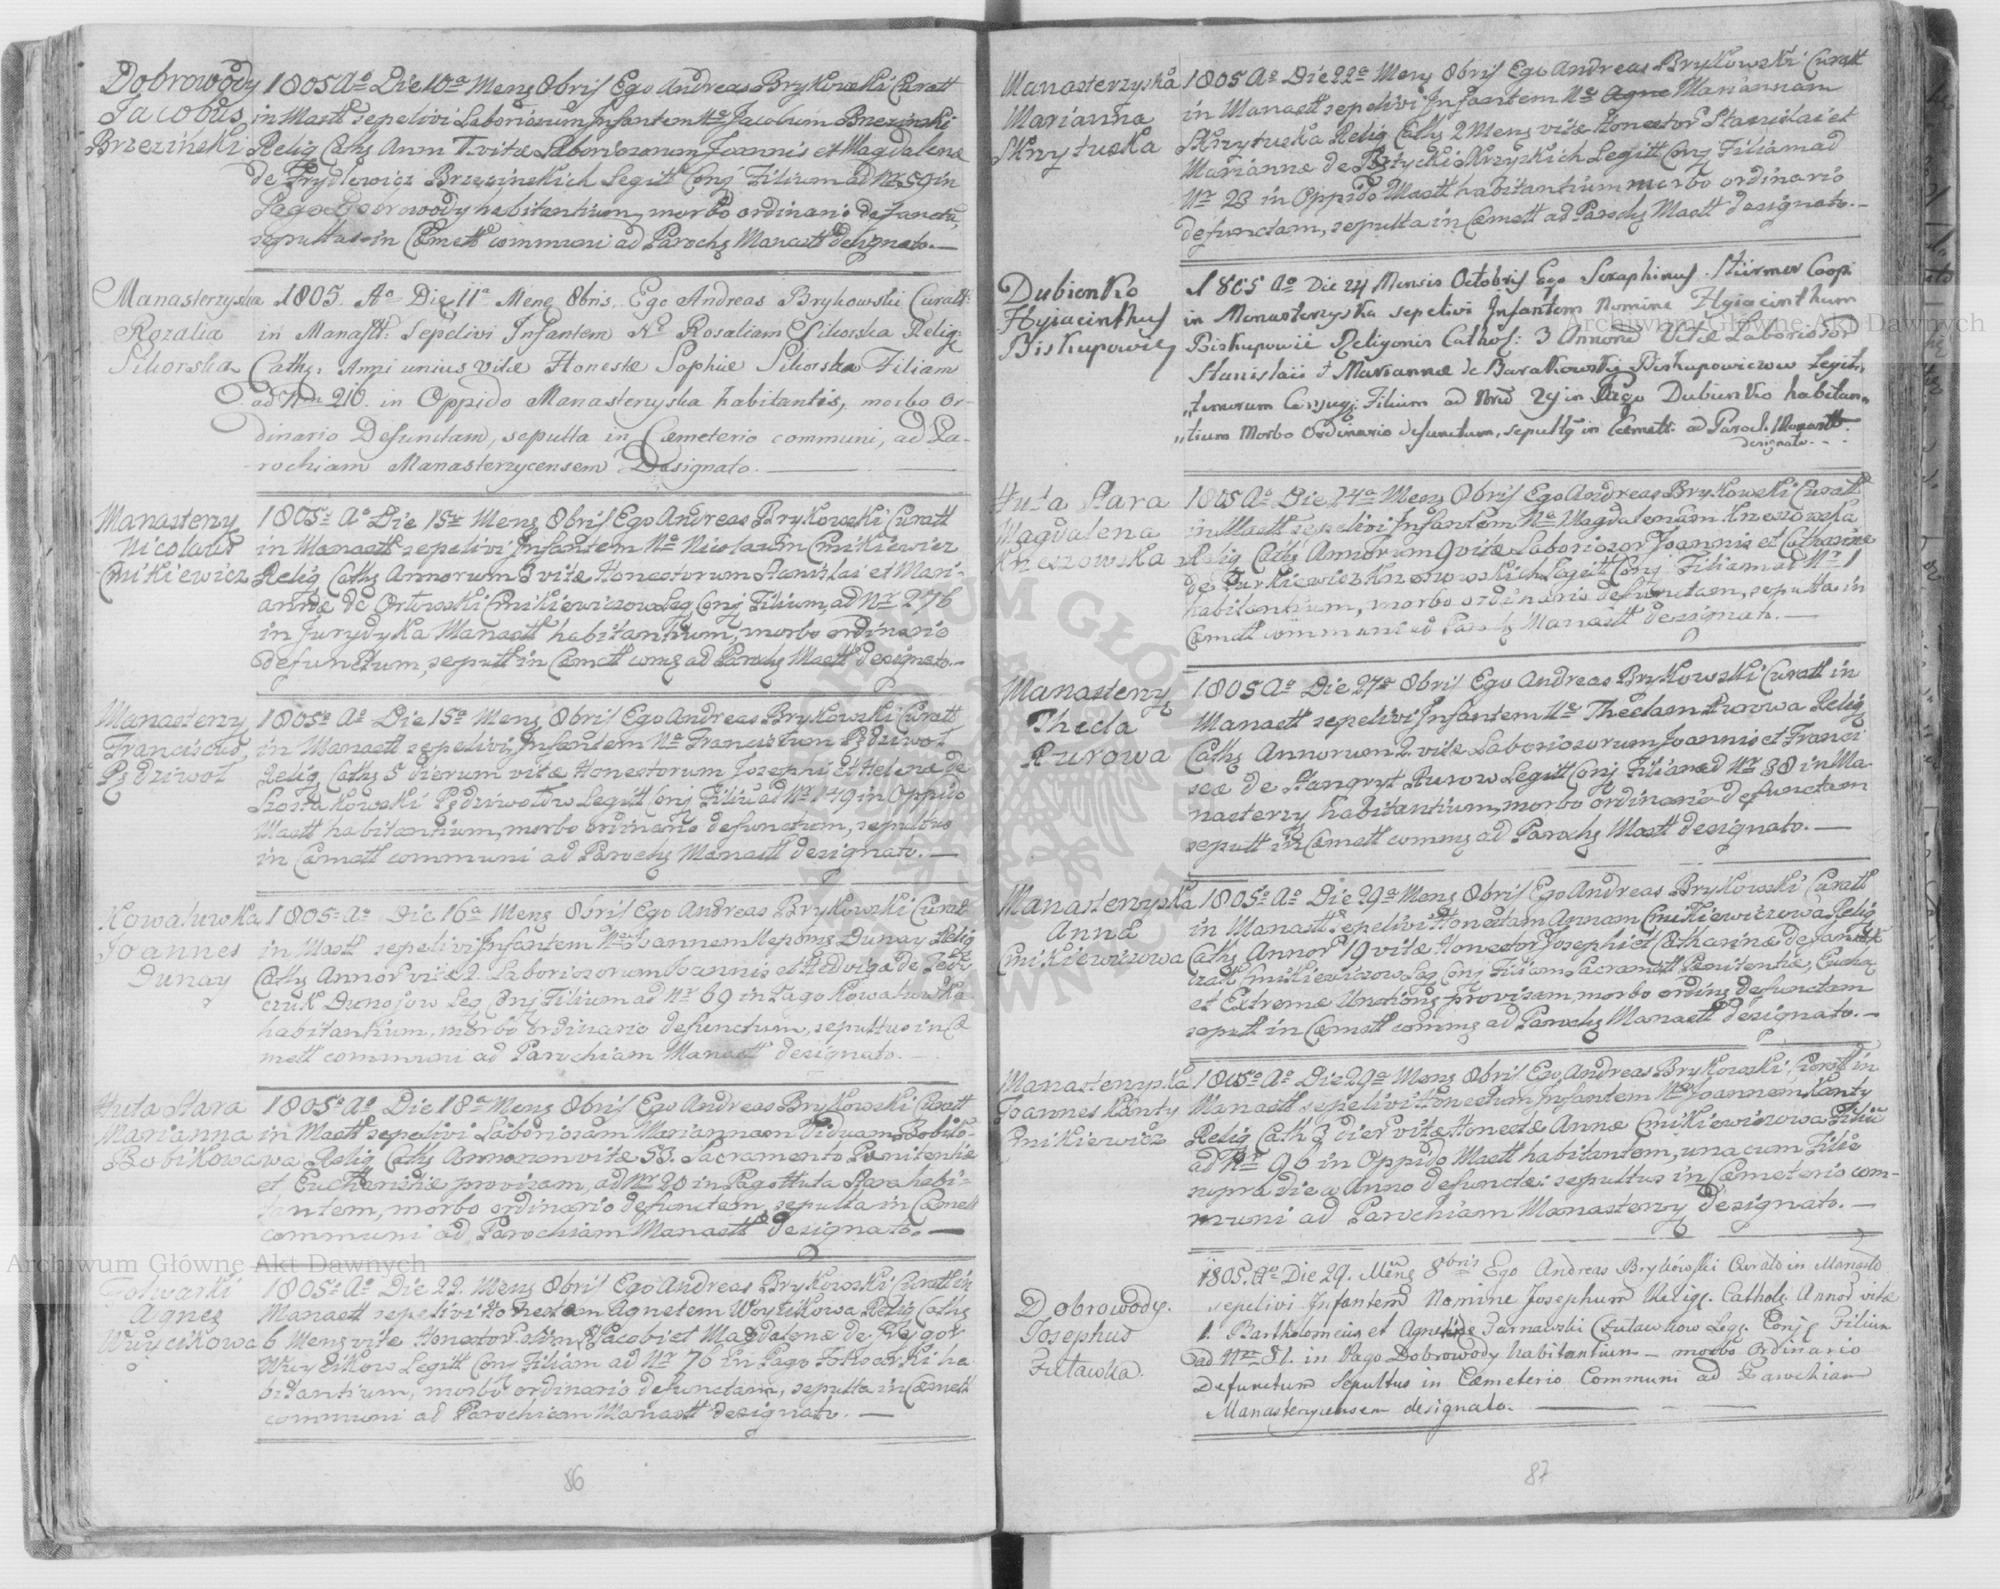 Dobrowody
Jacobus
Brzeziński
1805 Aº Die 10ª Mens 8bris Ego Andreas Brykowski Curatt
in Mastt sepelivi Laboriosum Infantem Nº Jacobum Brzezinski
Relig Caths Anni 1. vitæ Laboriosorum Joannis et Magdalenæ
de Frydlewicz Brzezinskich Legitt Conj Filium ad Nr 59 in
Pago Dobrowody habitantium, morbo ordinario defunctū,
sepultus in Cæmett communi ad Parochs Manastt designato.—
Manasterzyska
Rozalia
Sikorska
1805. Aº Die 11ª Mens 8bris. Ego Andreas Brykowski Curatt:
in Manastt: Sepelivi Infantem Nº Rosaliam Sikorska Relig:
Caths: Anni unius vitæ Honestæ Sophiæ Sikorska Filiam
ad Nrm 210. in Oppido Manasterzyska habitantis, morbo or-
dinario Defunctam, sepulta in Cæmeterio communi, ad Pa-
rochiam Manasterzycensem Designato.
Manasterzy
Nicolaus
Cmikiewicz
1805º Aº Die 15ª Mens 8bris Ego Andreas Brykowski Curatt
in Manastt sepelivi Infantem Nº Nicolaum Cmikiewicz
Relig Caths Annorum 3 vitæ Honestorum Stanislai et Mari-
annæ de Orłowski Cmikiewiczow Leg Conj Filium, ad Nr 276
in Jurydyka Manastt habitantium, morbo ordinario
defunctum, sepultt in Cæmett coms ad Parochs Mastt designato.—
Manasterzy
Franciscus
Pędziwoł
1805º Aº Die 15ª Mens 8bris Ego Andreas Brykowski Curatt
in Manastt sepelivi Infantem Nº Franciscum Pędziwoł
Relig Caths 5 dierum vitæ Honestorum Josephi et Helenæ de
Szostakowski Pędziwołow Legitt Conj Filiū ad Nr 119 in Oppido
Mastt habitantium, morbo ordinario defunctum, sepultus
in Cæmett communi ad Parochs Manastt designato.—
Kowalowka
Joannes
Dunay
1805º Aº Die 16ª Mens 8bris Ego Andreas Brykowski Curat
in Mastt sepelivi Infantem Nº Joannem Nepoms Dunay Relig
Caths Annor vitæ 2. Laboriosorum Joannis et Hedvigæ de
czuk Dunajow Leg Conj Filium ad Nr 69 in Pago Kowalowka
habitantium, morbo ordinario defunctum, sepultus in Cæ
mett communi ad Parochiam Manastt designato.—
Huta Stara
Marianna
Bobikowa
1805º Aº Die 18ª Mens 8bris Ego Andreas Brykowski Curatt
in Mastt sepelivi Laboriosam Mariannam Viduam Bobiko-
wa Relig Caths Annorum vitæ 53. Sacramento Pænitentiæ
et Eucharistiæ provisam, ad Nr 20 in Pago Huta Stara habi-
tantem, morbo ordinario defunctam, sepulta in Cæmett
communi ad Parochiam Manastt designato.—
Folwarki
Agnes
Wuycikowa
1805º Aº Die 22. Mens 8bris Ego Andreas Brykowski Curatt in
Manastt sepelivi Honestam Agnetem Woycikowa Relig Caths
6 Mens vitæ Honestor Jacobi et Magdalenæ de
Wuycikow Legitt Conj Filiam ad Nr 76 in Pago Folwarki ha
bitantium, morbo ordinario defunctam, sepulta in Cæmett
communi ad Parochiam Manastt designato.—
86
Manasterzyska
Marianna
Skrzytuska
1805 Aº Die 22ª Mens 8bris Ego Andreas Brykowski Curatt
in Manastt sepelivi Infantem Nº Agne Mariannam
Skrzytuska Relig Caths 2 Mens vitæ Honestor Stanislai et
Mariannæ de Legitt Conj Filiam ad
Nr 23 in Oppido Mastt habitantium morbo ordinario
defunctam, sepulta in Cæmett ad Parochs Mastt designato.—
Dubienko
Hyiacinthus
Biskupowicz
1805 Aº Die 24 Mensis Octobris Ego Seraphinus Stürmer Coop:
in Monasterzyska sepelivi Infantem Nomine Hyiacinthum
Biskupowic Religionis Cathol: 3 Annorū Vitæ Laborosor
Stanislai & Mariannæ de Barakowski Biskupowiczow Legit„
„timorum Conjug: Filium ad Nrū 29 in Pago Dubienko habitan„
„tium Morbo Ordinario defunctum, sepultg in Cæmett: ad Paroch Monastt
designato..
Huta Stara
Magdalena
Kneszowska
1805 Aº Die 24ª Mens 8bris Ego Andreas Brykowski Curatt
in Mastt sepelivi Infantem Nº Magdalenam Kneszowska
Relig Caths Annorum 9 vitæ Laboriosor Joannis et Catharinæ
de Turkiewicz Kneszowskich Legitt Conj Filiam ad Nr 1
habitantium, morbo ordinario defunctam, sepulta in
Cæmett communi ad Parochs Manastt designato.—
Manasterzy
Thecla
Kurowa
1805 Aº Die 27ª 8bris Ego Andreas Brykowski Curatt in
Manastt sepelivi Infantem Nº Theclam Kurowa Relig
Caths Annorum 2 vitæ Laboriosorum Joannis et Franci
scæ de Stangryt Kurow Legitt Conj Filiam ad Nr 38 in Ma-
nasterzy habitantium, morbo ordinario defunctam
sepult in Cæmett comms ad Parochs Mastt designato.—
Manasterzyska
Anna
Cmikiewiczowa
1805º Aº Die 29ª Mens 8bris Ego Andreas Brykowski Curatt
in Manastt sepelivi Honestam Annam Cmikiewiczowa Relig
Caths Annor 19 vitæ Honestor Josephi et Catharinæ de
czak Cmikiewiczow Leg Conj Filiam Sacramett Pænitentiæ, Euchar
et Extremæ Unctionis provisam, morbo ordins defunctam
sepult in Cæmett comms ad Parochs Manastt designato.—
Manasterzyska
Joannes Kanty
Cmikiewicz
1805º Aº Die 29ª Mens 8bris Ego Andreas Brykowski Curatt in
Manastt sepelivi Honestum Infantem Nº Joannem Kanty
Relig Cath 3 dier vitæ Honestæ Annæ Cmikiewiczowa Filiū
ad Nr 96 in Oppido Mastt habitantem, una cum Filio
supra die a Anno defunctæ: sepultus in Cæmeterio com-
muni ad Parochiam Manasterzy designato.—
Dobrowody.
Josephus
Futawka.
1805. Aº Die 29. Mens 8bris Ego Andreas Brykowski Curato in Manastt
sepelivi Infantem Nomine Josephum Religs. Catholg. Annor vitæ
1. Bartholomeus et Agnetidæ Tarnawski Futawkow Legs. Conj Filium
ad Nrm 81. in Pago Dobrowody habitantium – morbo Ordinario
Defunctum Sepultus in Cæmeterio Communi ad Parochiam
Manasterzycensem designato.
87
Archiwum Główne Akt Dawnych
Archiwum Główne Akt Dawnych
ARCHIWUM GŁÓWNE AKT DAWNYCH